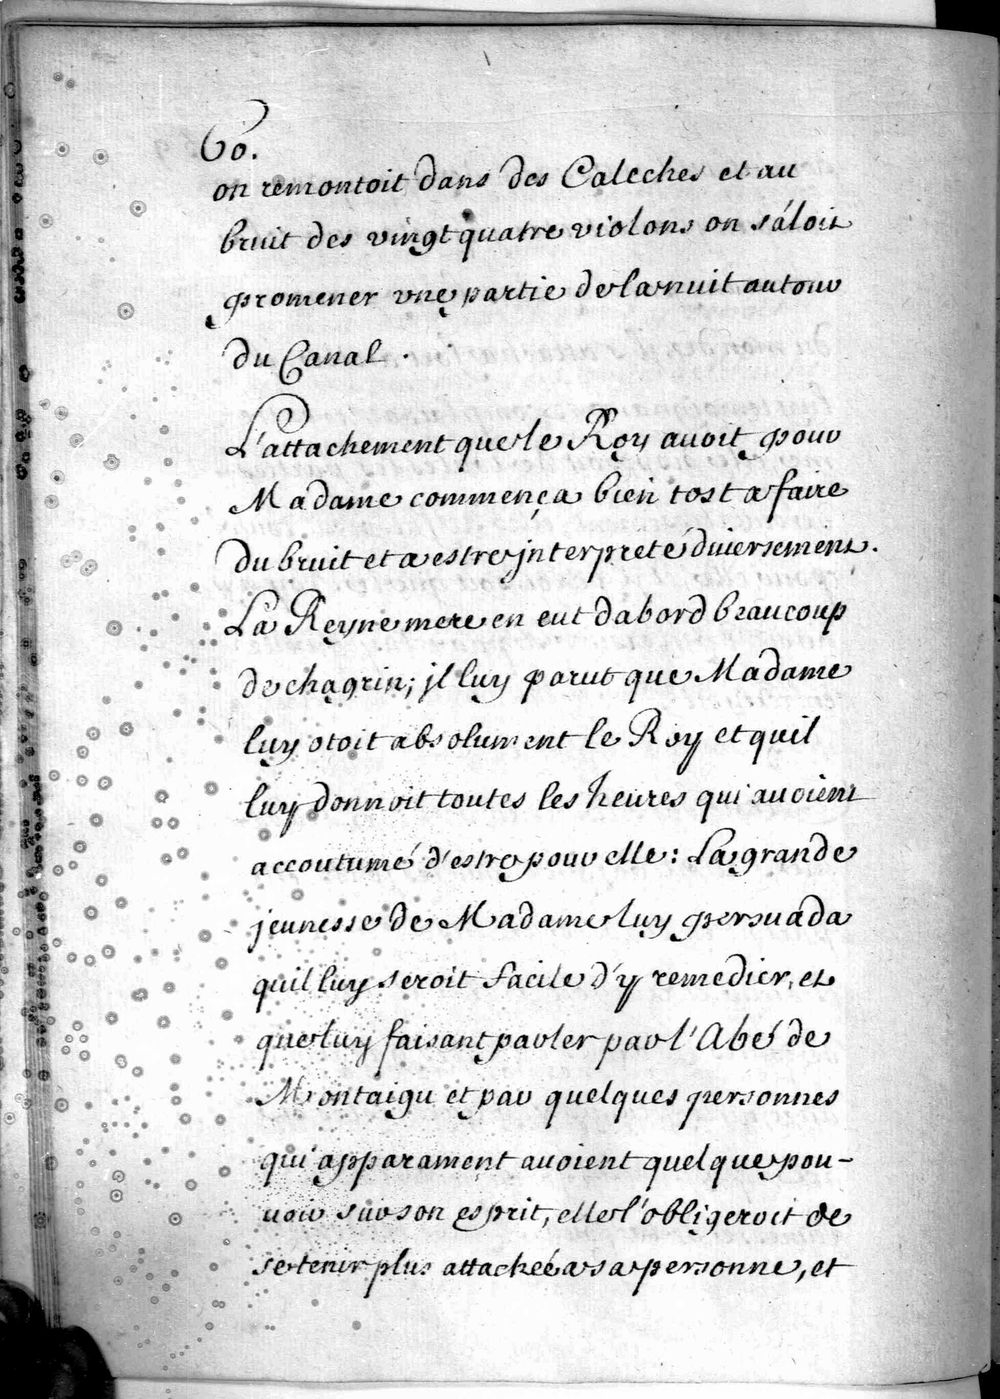 60.
on remontoit dans des Caleches et au
bruit des vingt quatre violons on s'áloit
promener vne partie de la nuit autour
du Canal.
L'attachement que le Roy auoit pour
Madame commença bien tost a faire
du bruit et a estre jnterpreté diuersement.
La Reyne mere en eut dabord beaucoup
de chagrin; jl luy parut que Madame
luy otoit absolument le Roy et quil
luy donnoit toutes les heures qui auoient
accoutumé d'estre pour elle: La grande
jeunesse de Madame luy persuada
quil luy seroit facile d'y remedier, et
que luy faisant parler par l'Abé de
Montaigu et par quelques personnes
qui apparament auoient quelque pou-
uoir sur son esprit, elle l'obligeroit de
se tenir plus attachée a sa personne, et